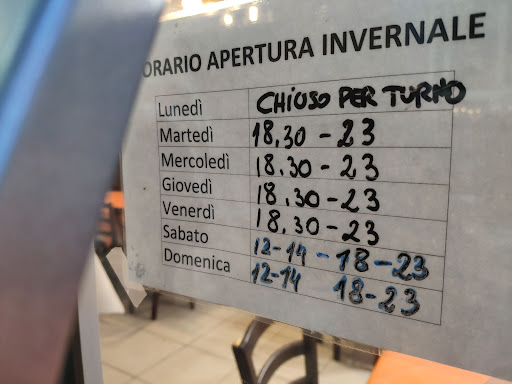 ORARIO APERTURA INVERNALE
Lunedì CHIUSO PER TURNO
Martedì 18.30 - 23
Mercoledì 18.30 - 23
Giovedì 18.30 - 23
Venerdì 18.30 - 23
Sabato 12-14 - 18-23
Domenica 12-14 18-23